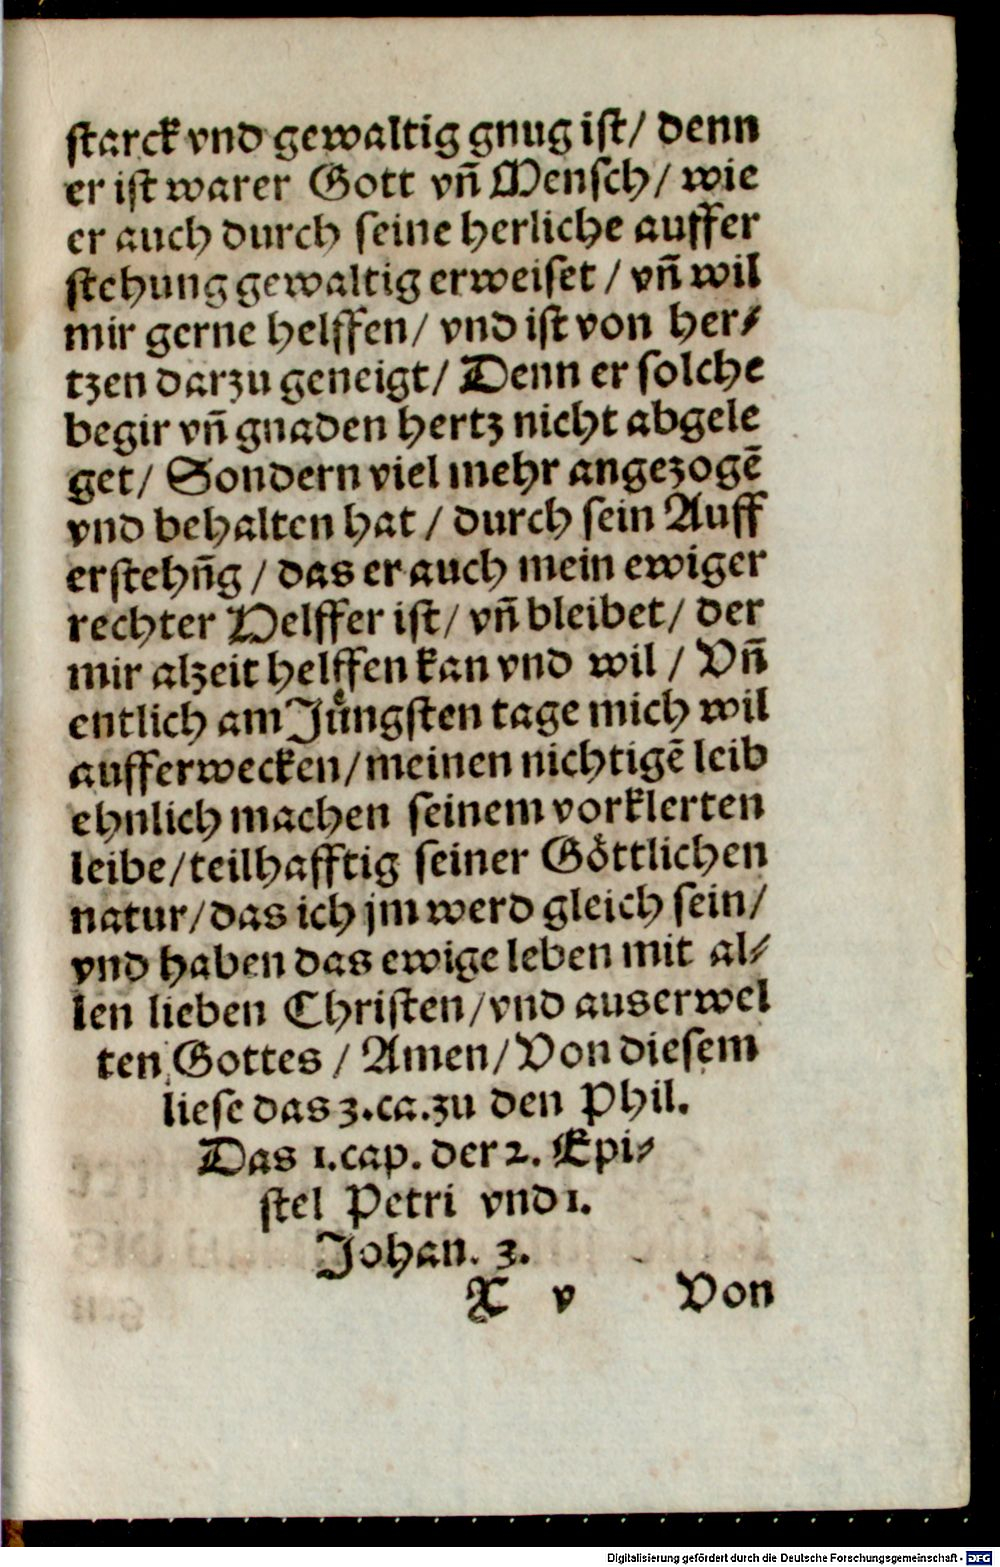 starck vnd gewaltig gnug ist/ denn
er ist warer Gott vñ Mensch/ wie
er auch durch seine herliche auffer
stehung gewaltig erweiset / vñ wil
mir gerne helffen/ vnd ist von her⸗
tzen darzu geneigt/ Denn er solche
begir vñ gnaden hertz nicht abgele
get/ Sondern viel mehr angezogẽ
vnd behalten hat / durch sein Auff
erstehñg / das er auch mein ewiger
rechter Helffer ist/ vñ bleibet/ der
mir alzeit helffen kan vnd wil / Vñ
entlich am Jüngsten tage mich wil
aufferwecken/meinen nichtigẽ leib
ehnlich machen seinem vorklerten
leibe/teilhafftig seiner Göttlichen
natur/das ich jm werd gleich sein/
vnd haben das ewige leben mit al⸗
len lieben Christen/vnd auserwel
ten Gottes / Amen/Von diesem
liese das 3.ca.zu den Phil.
Das 1.cap. der 2. Epi⸗
stel Petri vnd 1.
Johan. 3.
X v Von
Digitalisierung gefördert durch die Deutsche Forschungsgemeinschaft - DFG